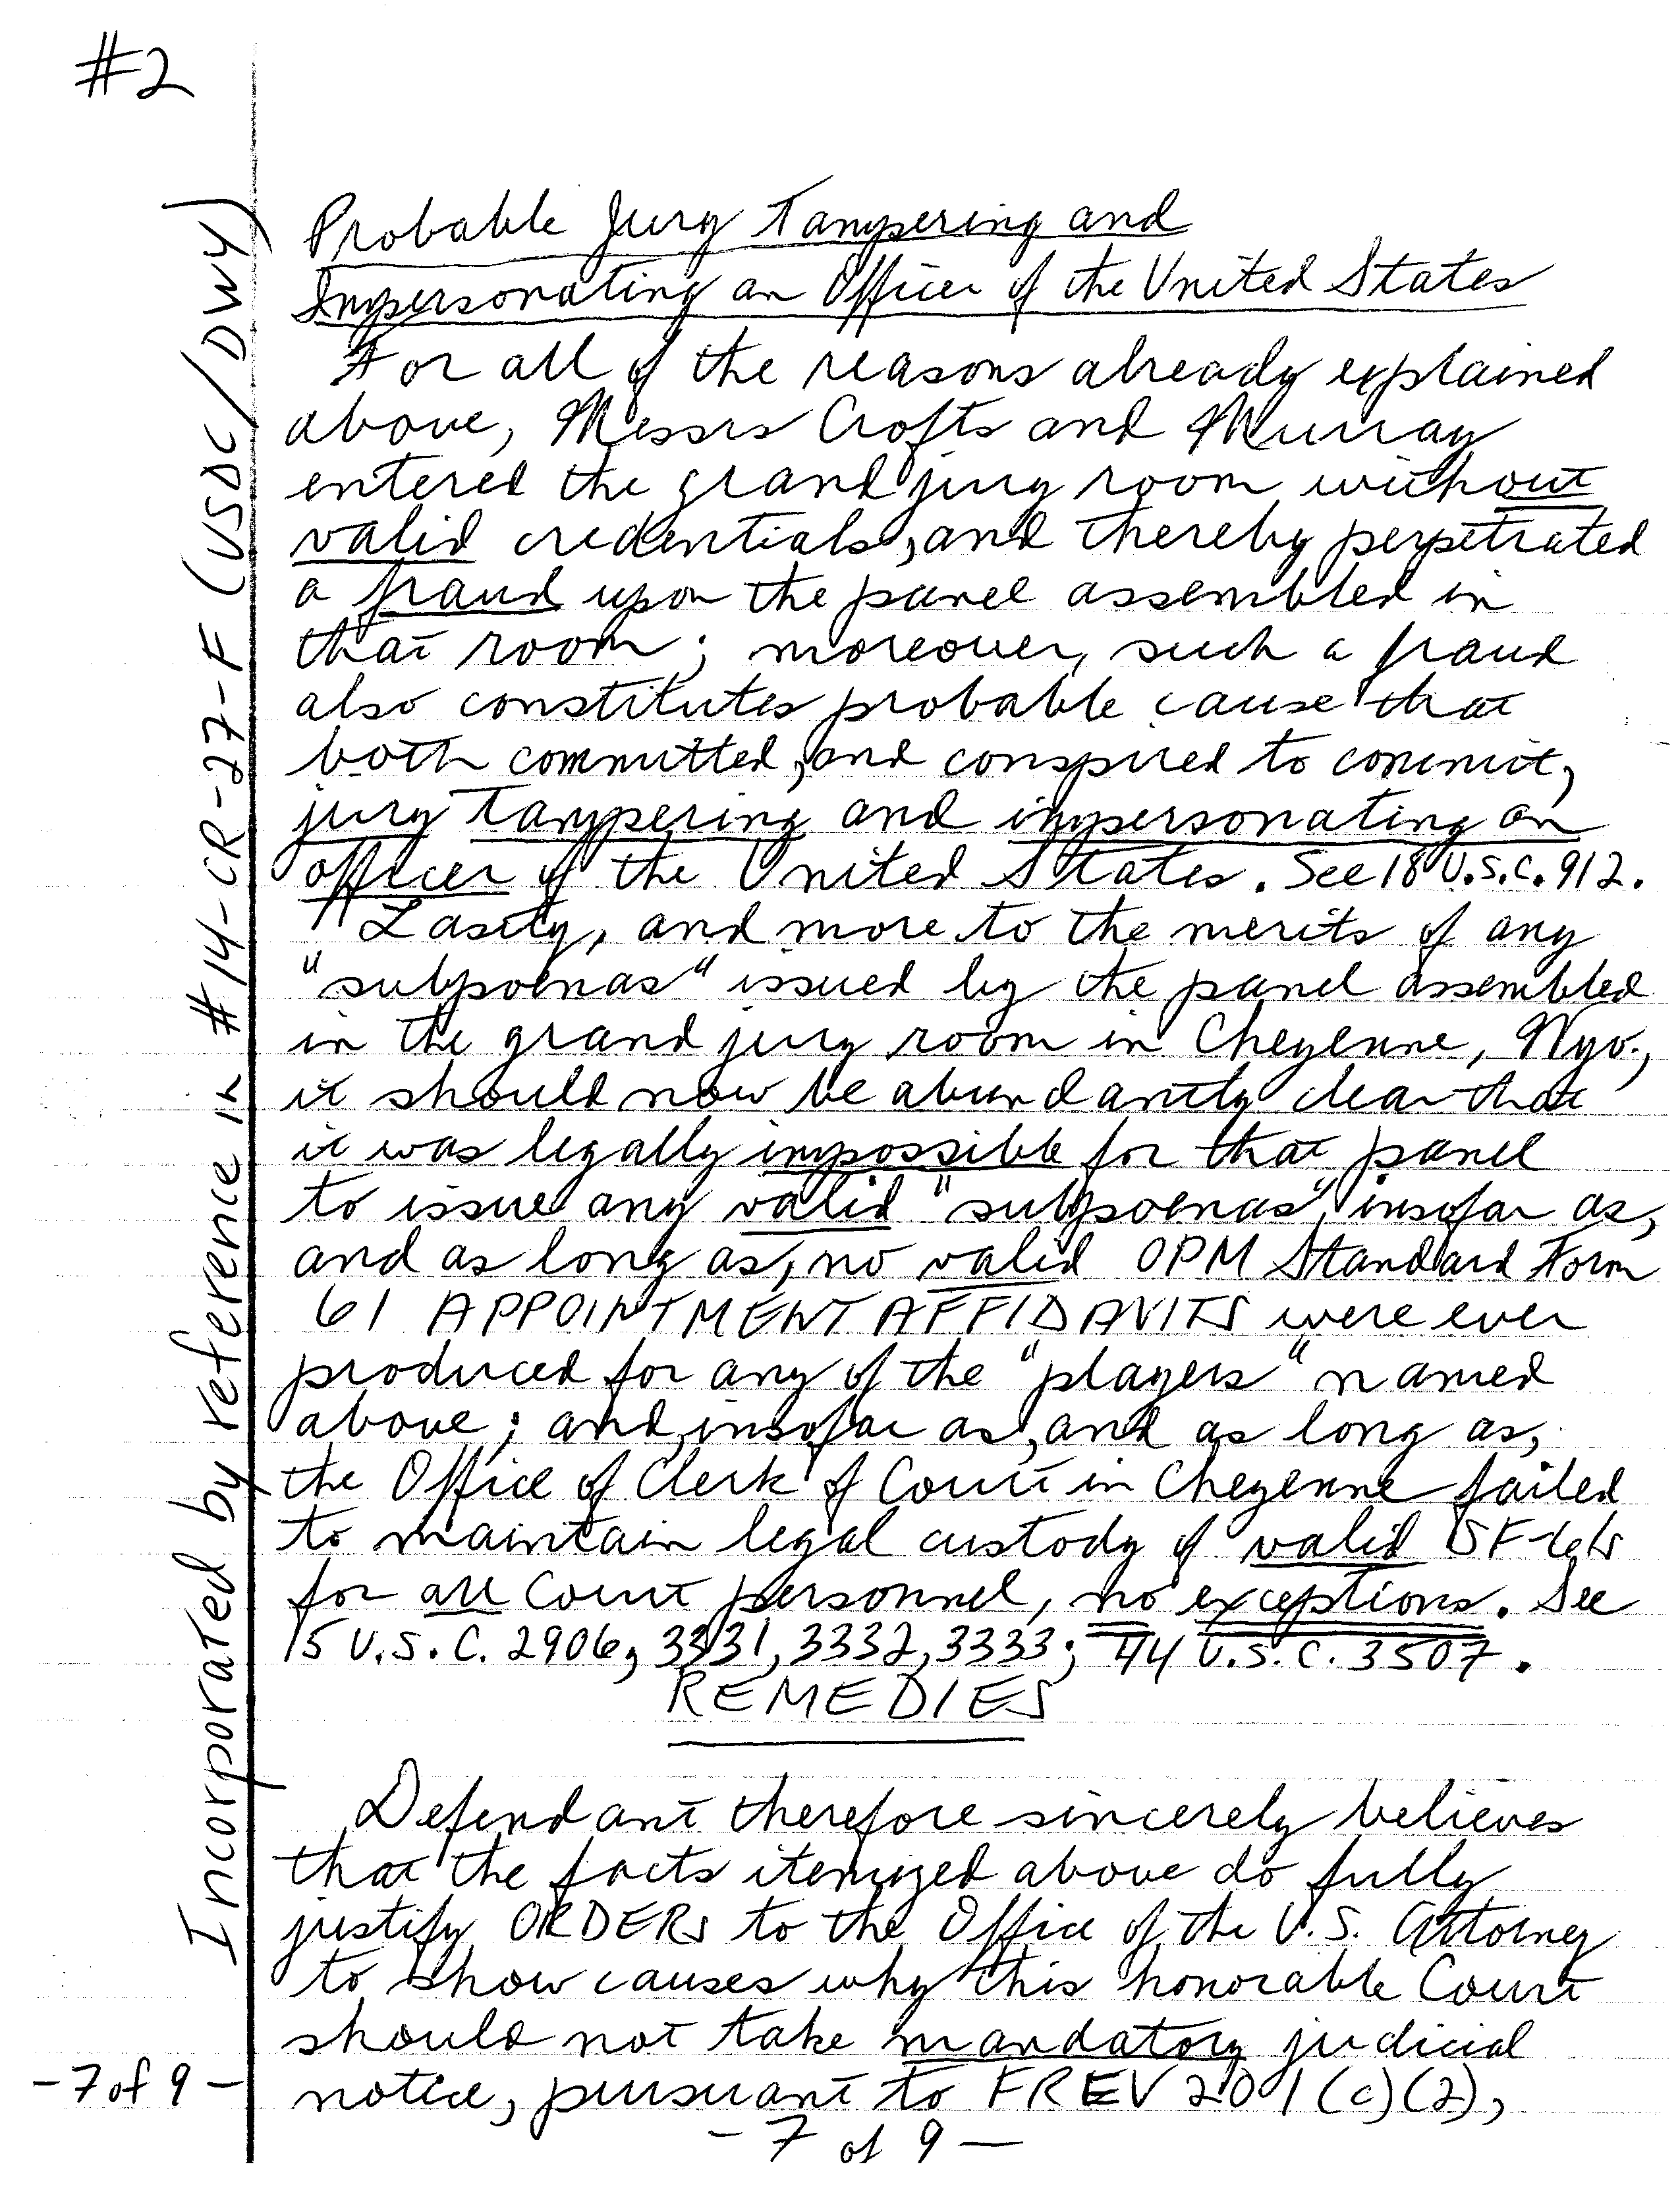 #2
Incorporated by reference in #14-CR-27-F (USDC/DWY)
Probable Jury Tampering and
Impersonating an Officer of the United States
For all of the reasons already explained
above, Messrs Crofts and Murray
entered the grand jury room without
valid credentials, and thereby perpetrated
a fraud upon the panel assembled in
that room; moreover, such a fraud
also constitutes probable cause that
both committed, and conspired to commit,
jury tampering and impersonating an
officer of the United States. See 18 U.S.C. 912.
Lastly, and more to the merits of any
"subpoenas" issued by the panel assembled
in the grand jury room in Cheyenne, Wyo.,
it should now be abundantly clear that
it was legally impossible for that panel
to issue any valid "subpoenas", insofar as,
and as long as, no valid OPM Standard Form
61 APPOINTMENT AFFIDAVITS were ever
produced for any of the "players" named
above; and, insofar as, and as long as,
the Office of Clerk of Court in Cheyenne failed
to maintain legal custody of valid SF-61s
for all Court personnel, no exceptions. See
5 U.S.C. 2906, 3331, 3332, 3333; 44 U.S.C. 3507.
REMEDIES
Defendant therefore sincerely believes
that the facts itemized above do fully
justify ORDERs to the Office of the U.S. Attorney
to show causes why this honorable Court
should not take mandatory judicial
notice, pursuant to FREV 201(c)(2),
- 7 of 9 -
- 7 of 9 -